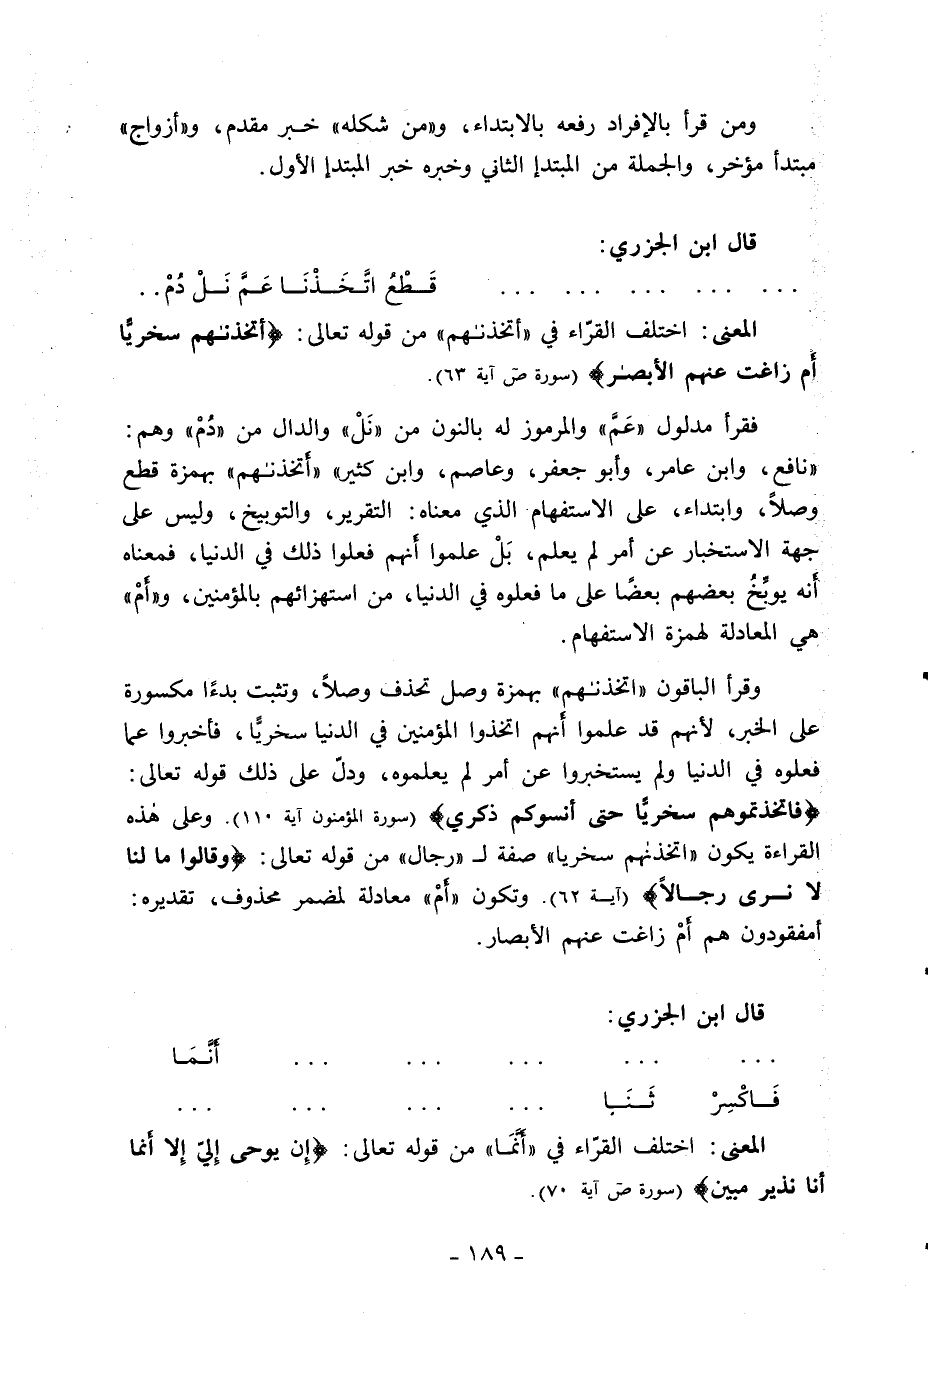 ومن قرأ بالإفراد رفعه بالابتداء، و«من شكله» خبر مقدم، و«أزواج»
مبتدأ مؤخر، والجملة من المبتدإ الثاني وخبره خبر المبتدإ الأول.
قال ابن الجزري:
... ... ... ... ... قَطْعُ اتَّخَذْنَا عَمَّ نَلْ دُمْ..
المعنى: اختلف القرّاء في «أتخذنـٰهم» من قوله تعالى: ﴿أتخذنـٰهم سخريًّا
أم زاغت عنهم الأبصـٰر﴾ (سورة صٓ آية ٦٣).
فقرأ مدلول «عَمَّ» والمرموز له بالنون من «نَلْ» والدال من «دُمْ» وهم:
«نافع، وابن عامر، وأبو جعفر، وعاصم، وابن كثير» «أَتخذنـٰهم» بهمزة قطع
وصلاً، وابتداء، على الاستفهام الذي معناه: التقرير، والتوبيخ، وليس على
جهة الاستخبار عن أمر لم يعلم، بَلْ علموا أَنهم فعلوا ذلك في الدنيا، فمعناه
أَنه يوبِّخُ بعضهم بعضًا على ما فعلوه في الدنيا، من استهزائهم بالمؤمنين، و«أَمْ»
هي المعادلة لهمزة الاستفهام.
وقرأ الباقون «اتخذنـٰهم» بهمزة وصل تحذف وصلاً، وتثبت بدءًا مكسورة
على الخبر، لأنهم قد علموا أَنهم اتخذوا المؤمنين في الدنيا سخريًّا، فأخبروا عما
فعلوه في الدنيا ولم يستخبروا عن أمر لم يعلموه، ودلّ على ذلك قوله تعالى:
﴿فاتخذتموهم سخريًّا حتى أنسوكم ذكري﴾ (سورة المؤمنون آية ١١٠). وعلى هٰذه
القراءة يكون «اتخذنٰهم سخريا» صفة لـ «رجال» من قوله تعالى: ﴿وقالوا ما لنا
لا نرى رجالاً﴾ (آية ٦٢). وتكون «أَمْ» معادلة لمضمر محذوف، تقديره:
أمفقودون هم أَمْ زاغت عنهم الأبصار.
قال ابن الجزري:
... ... ... ... ... أَنَّمَا
فَاكْسِرْ ثَنَا ... ... ... ...
المعنى: اختلف القرّاء في «أَنَّمَا» من قوله تعالى: ﴿إِن يوحى إِليّ إِلا أَنما
أنا نذير مبين﴾ (سورة صٓ آية ٧٠).
- ١٨٩ -